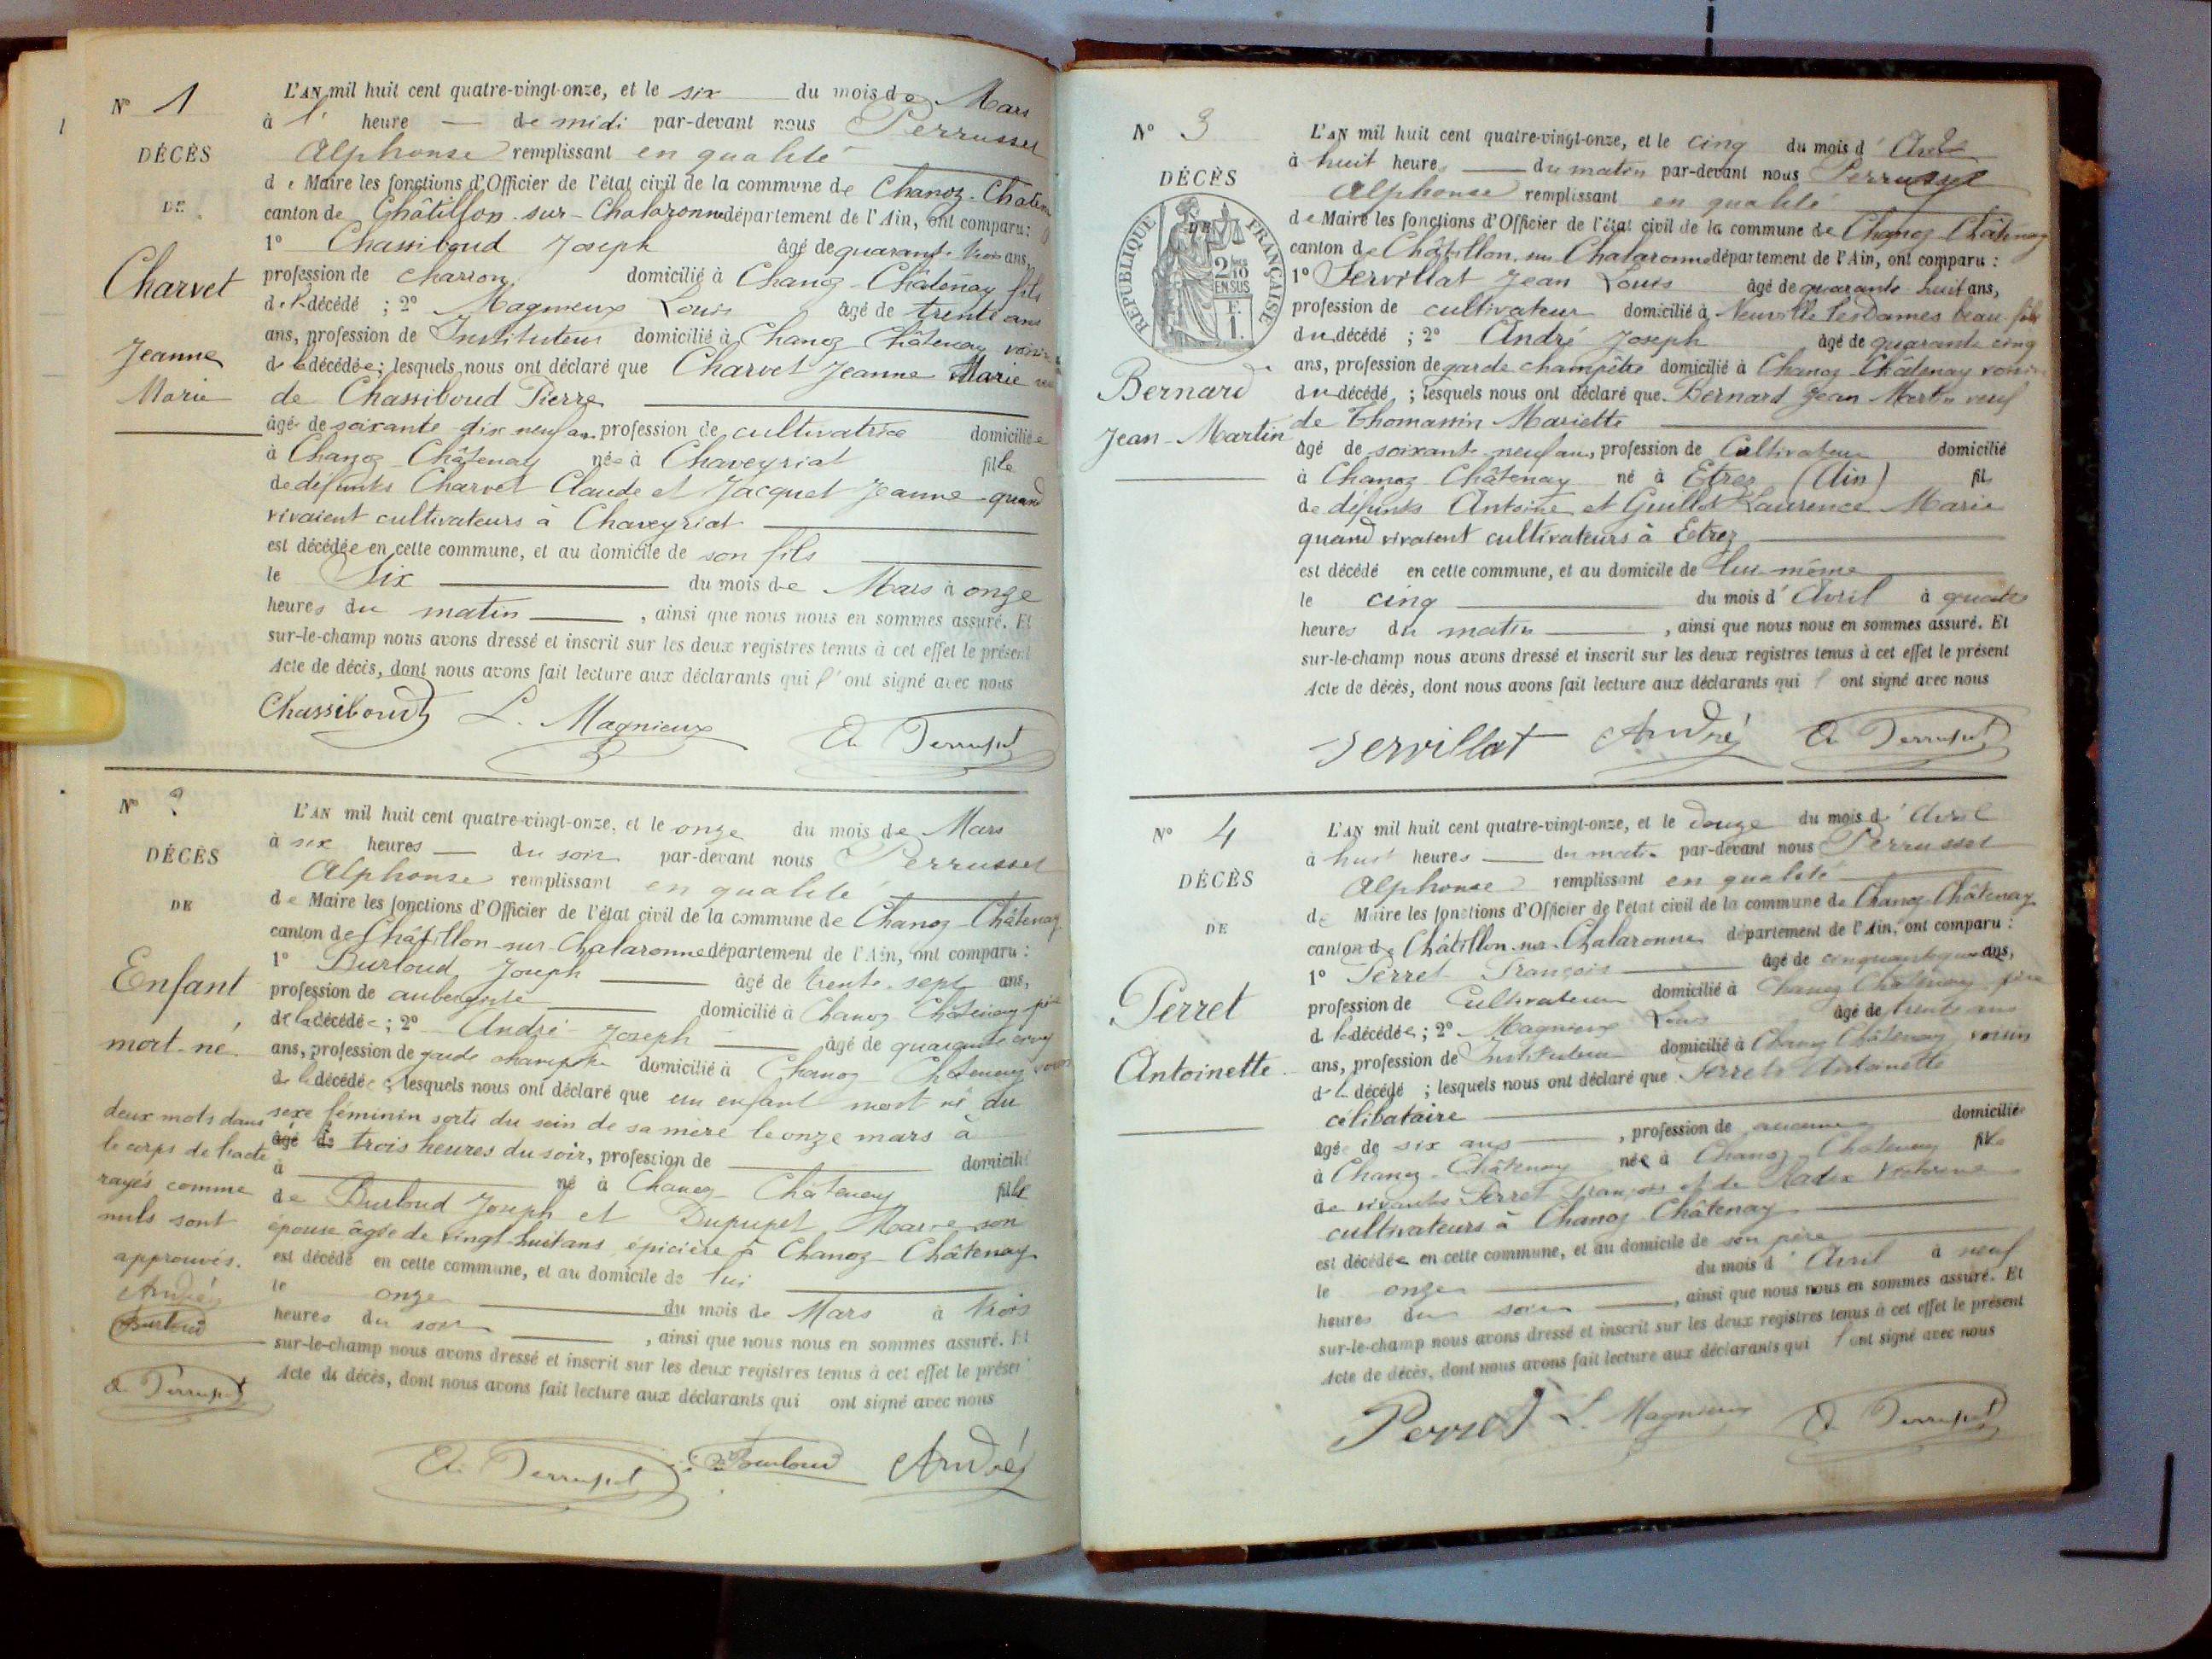 N° 1
DÉCÈS
DE
Charvet
Jeanne
Marie
L'AN mil huit cent quatre-vingt-onze, et le six du mois de Mars
à l' heure de midi par-devant nous Perrussel
Alphonse remplissant en qualité
de Maire les fonctions d'Officier de l'état civil de la commune de Chanoz-Chaten
canton de Châtillon-sur-Chalaronne département de l'Ain, ont comparu :
1° Chassiboud Joseph âgé de quarante trois ans,
profession de charron domicilié à Chanoz-Châtenay fils
de la décédé ; 2° Magnieux Louis âgé de trente ans
ans, profession de Instituteur domicilié à Chanoz Châtenay voisin
de la décédée ; lesquels nous ont déclaré que Charvet Jeanne Marie
de Chassiboud Pierre
âgé de soixante dix neuf ans profession de cultivatrice domiciliée
à Chanoz-Châtenay née à Chaveyriat fille
de défunts Charvet Claude et Jacquet Jeanne quand
vivaient cultivateurs à Chaveyriat
est décédée en cette commune, et au domicile de son fils
le Six du mois de Mars à onze
heures du matin, ainsi que nous nous en sommes assuré. Et
sur-le-champ nous avons dressé et inscrit sur les deux registres tenus à cet effet le présent
Acte de décès, dont nous avons fait lecture aux déclarants qui l'ont signé avec nous
Chassiboud L. Magnieux A. Perrussel
N° 2
DÉCÈS
DE
Enfant
mort-né.
deux mots dans
le corps de l'acte
rayés comme
nuls sont
approuvés.
André
Burloud
A. Perrussel
L'AN mil huit cent quatre-vingt-onze, et le onze du mois de Mars
à six heures du soir par-devant nous Perrussel
Alphonse remplissant en qualité
de Maire les fonctions d'Officier de l'état civil de la commune de Chanoz-Châtenay
canton de Châtillon-sur-Chalaronne département de l'Ain, ont comparu :
1° Burloud Joseph âgé de trente-sept ans,
profession de aubergiste domicilié à Chanoz Châtenay père
de la décédée ; 2° André Joseph âgé de quarante cinq
ans, profession de garde champêtre domicilié à Chanoz Châtenay voisin
de la décédée ; lesquels nous ont déclaré que un enfant mort né du
sexe féminin sorti du sein de sa mère le onze mars à
âgé de trois heures du soir, profession de domicilié
à né à Chanoz-Châtenay fille
de Burloud Joseph et Dupupet Marie son
épouse âgée de vingt-huit ans épicière à Chanoz-Châtenay
est décédé en cette commune, et au domicile de lui
le onze du mois de Mars à trois
heures du soir, ainsi que nous nous en sommes assuré. Et
sur-le-champ nous avons dressé et inscrit sur les deux registres tenus à cet effet le présent
Acte de décès, dont nous avons fait lecture aux déclarants qui ont signé avec nous
A. Perrussel Burloud André
N° 3
DÉCÈS
DE
RÉPUBLIQUE FRANÇAISE
2/10
EN SUS
F.
1.
Bernard
Jean-Martin
L'AN mil huit cent quatre-vingt-onze, et le cinq du mois d'Avril
à huit heures du matin par-devant nous Perrussel
Alphonse remplissant en qualité
de Maire les fonctions d'Officier de l'état civil de la commune de Chanoz-Châtenay
canton de Châtillon-sur-Chalaronne département de l'Ain, ont comparu :
1° Servillat Jean Louis âgé de quarante-huit ans,
profession de cultivateur domicilié à Neuville les Dames beau-fils
du décédé ; 2° André Joseph âgé de quarante cinq
ans, profession de garde champêtre domicilié à Chanoz-Châtenay voisin
du décédé ; lesquels nous ont déclaré que Bernard Jean Martin veuf
de Thomassin Mariette
âgé de soixante-neuf ans, profession de Cultivateur domicilié
à Chanoz Châtenay né à Etrez (Ain) fils
de défunts Antoine et Guillot Laurence Marie
quand vivaient cultivateurs à Etrez
est décédé en cette commune, et au domicile de lui-même
le cinq du mois d'Avril à quatre
heures du matin, ainsi que nous nous en sommes assuré. Et
sur-le-champ nous avons dressé et inscrit sur les deux registres tenus à cet effet le présent
Acte de décès, dont nous avons fait lecture aux déclarants qui l'ont signé avec nous
Servillat André A. Perrussel
N° 4
DÉCÈS
DE
Perret
Antoinette
L'AN mil huit cent quatre-vingt-onze, et le douze du mois d'Avril
à huit heures du matin par-devant nous Perrussel
Alphonse remplissant en qualité
de Maire les fonctions d'Officier de l'état civil de la commune de Chanoz-Châtenay
canton de Châtillon-sur-Chalaronne département de l'Ain, ont comparu :
1° Perret François âgé de ans,
profession de Cultivateur domicilié à Chanoz Châtenay père
de la décédée ; 2° Magnieux Louis âgé de trente ans
ans, profession de Instituteur domicilié à Chanoz Châtenay voisin
de la décédé ; lesquels nous ont déclaré que Perret Antoinette
célibataire
âgée de six ans, profession de aucune domiciliée
à Chanoz-Châtenay née à Chanoz-Châtenay fille
de vivants Perret François et de
cultivateurs à Chanoz-Châtenay
est décédée en cette commune, et au domicile de son père
le onze du mois d'Avril à neuf
heures du soir, ainsi que nous nous en sommes assuré. Et
sur-le-champ nous avons dressé et inscrit sur les deux registres tenus à cet effet le présent
Acte de décès, dont nous avons fait lecture aux déclarants qui l'ont signé avec nous
Perret L. Magnieux A. Perrussel